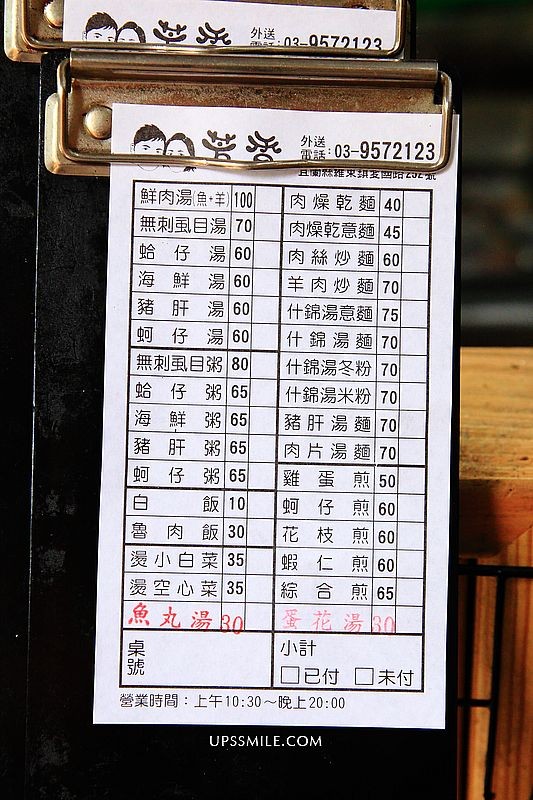 外送
電話：03-9572123
芳香
外送
電話：03-9572123
宜蘭縣羅東鎮愛國路252號
鮮肉湯(魚+羊) 100
無刺虱目湯 70
蛤仔湯 60
海鮮湯 60
豬肝湯 60
蚵仔湯 60
無刺虱目粥 80
蛤仔粥 65
海鮮粥 65
豬肝粥 65
蚵仔粥 65
白飯 10
魯肉飯 30
燙小白菜 35
燙空心菜 35
魚丸湯 30
桌號
肉燥乾麵 40
肉燥乾意麵 45
肉絲炒麵 60
羊肉炒麵 70
什錦湯意麵 75
什錦湯麵 70
什錦湯冬粉 70
什錦湯米粉 70
豬肝湯麵 70
肉片湯麵 70
雞蛋煎 50
蚵仔煎 60
花枝煎 60
蝦仁煎 60
綜合煎 65
蛋花湯 30
小計
□已付 □未付
營業時間：上午10:30～晚上20:00
UPSSMILE.COM